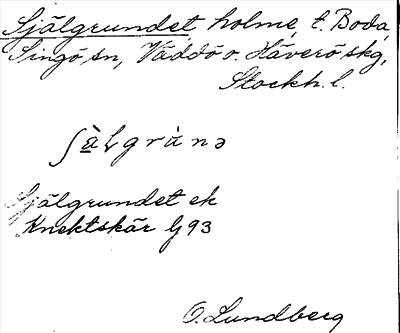 Själgrundet holme, t. Boda,
Singö sn, Väddö o. Häverö skg,
Stockh. l.
ʃä̀lgrùnə
Själgrundet ek
Knektskär G 93
O. Lundberg